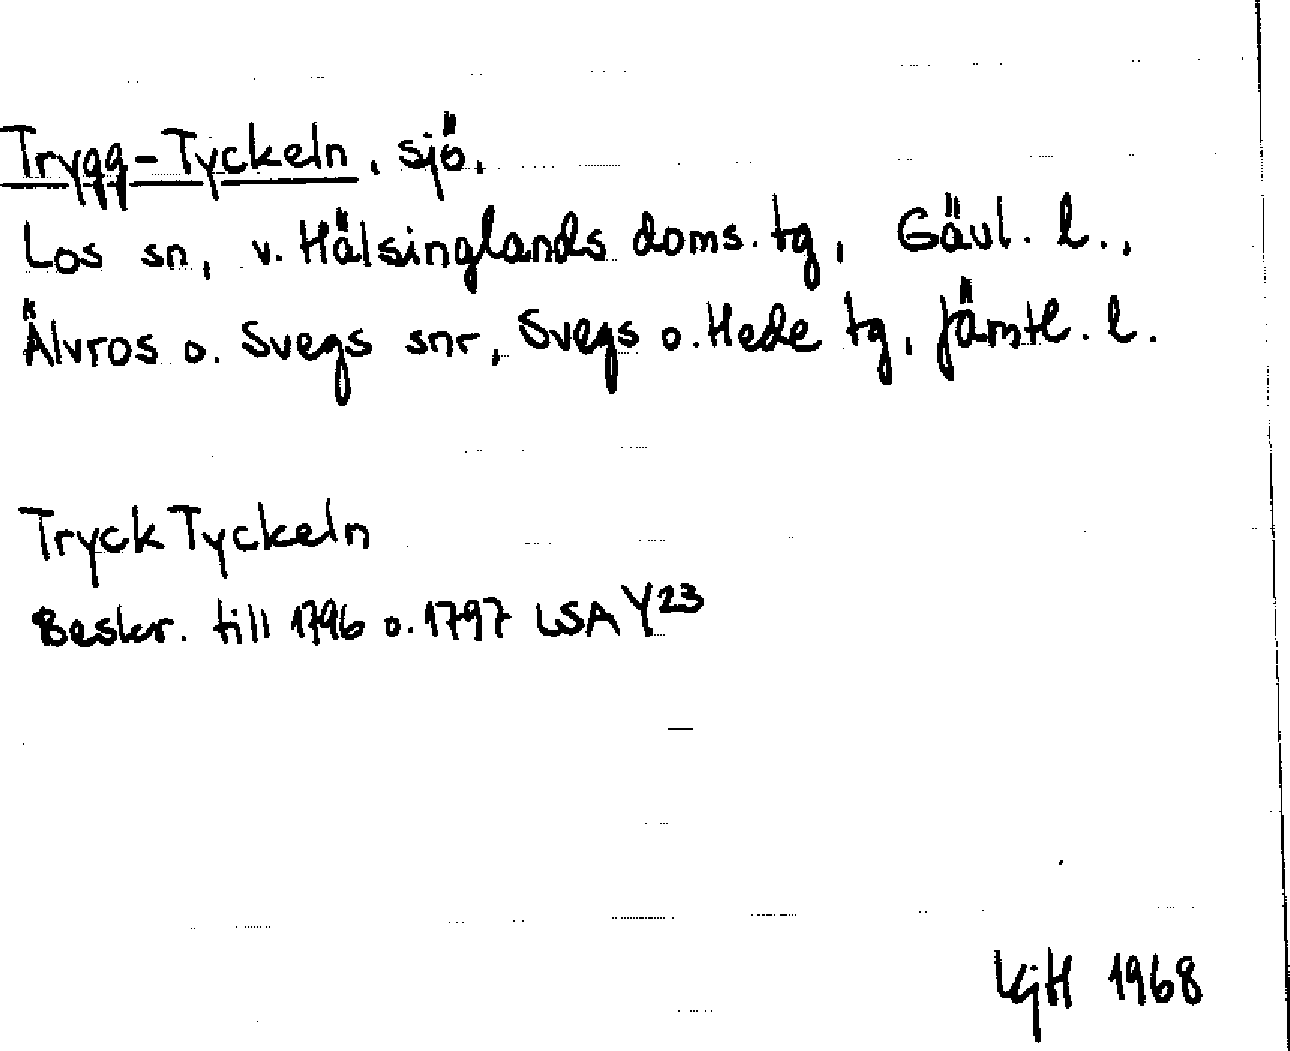 Trygg-Tyckeln, sjö,
Los sn, v. Hälsinglands doms. tg, Gävl. l.,
Älvros o. Svegs snr, Svegs o. Hede tg, Jämtl. l.
Tryck Tyckeln
Beskr. till 1796 o. 1797 LSA Y23
1968